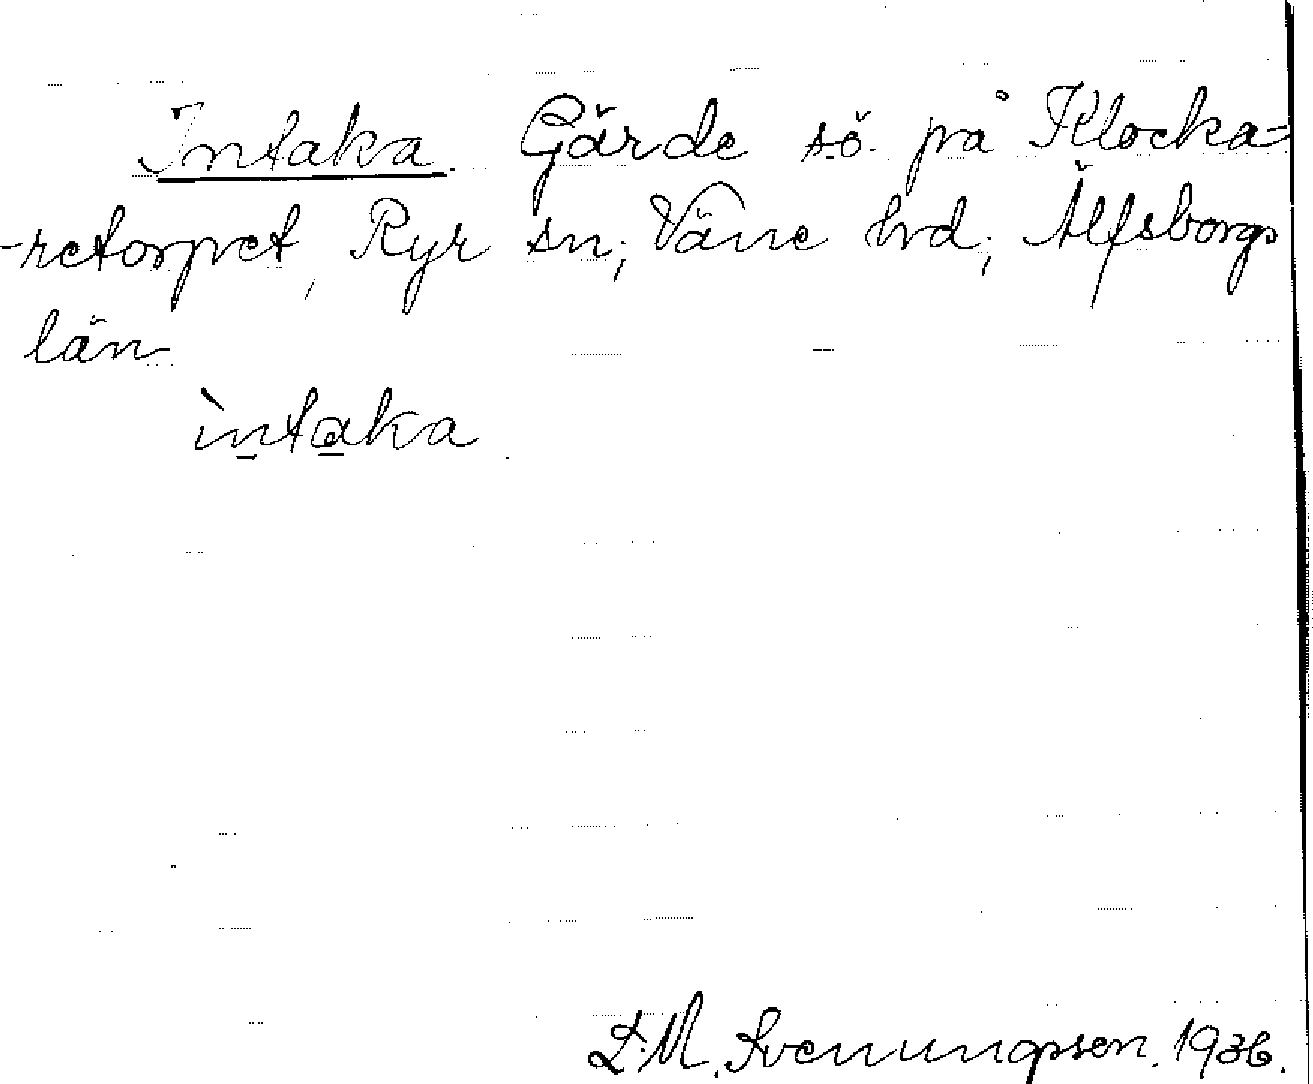 Intaka. Gärde s.ö. på Klocka-
-retorpet, Ryr sn; Väne hrd; Älfsborgs
län.
ìntaka.
D.M. Svenungsson. 1936.